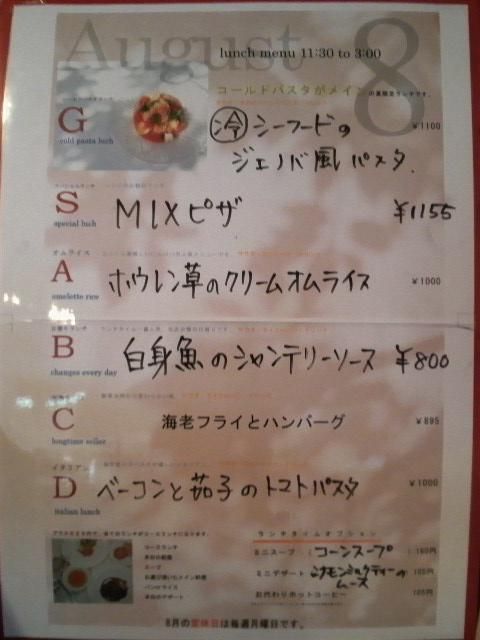 August 8
lunch menu 11:30 to 3:00
コールドパスタがメインの夏限定ランチです。
G
cold pasta luch
冷 シーフードの
ジェノバ風パスタ
¥1100
S
special luch
MIXピザ
¥1155
オムライス
A
omelette rice
ホウレン草のクリームオムライス
¥1000
B
changes every day
白身魚のシャンテリーソース
¥800
C
longtime seller
海老フライとハンバーグ
¥895
イタリアン
D
italian lunch
ベーコンと茄子のトマトパスタ
¥1000
コースランチ
本日の前菜
スープ
お選び頂いたメイン料理
パンorライス
本日のデザート
ランチタイムオプション
ミニスープ :コーンスープ :160円
ミニデザート :シナモンミルクティーの
ムース
:105円
お代わりホットコーヒー :105円
8月の定休日は毎週月曜日です。